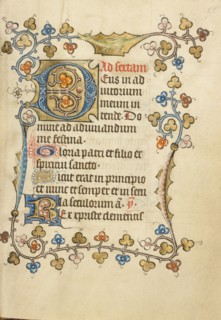 Ad sextam
Deus in ad
iutorium
meum in
tende. Do
mine ad adiuuandum
me festina.
Gloria patri et filio et
spiritui sancto.
Sicut erat in principio
et nunc et semper et in secu
la seculorum a.
Rex xpriste clementis